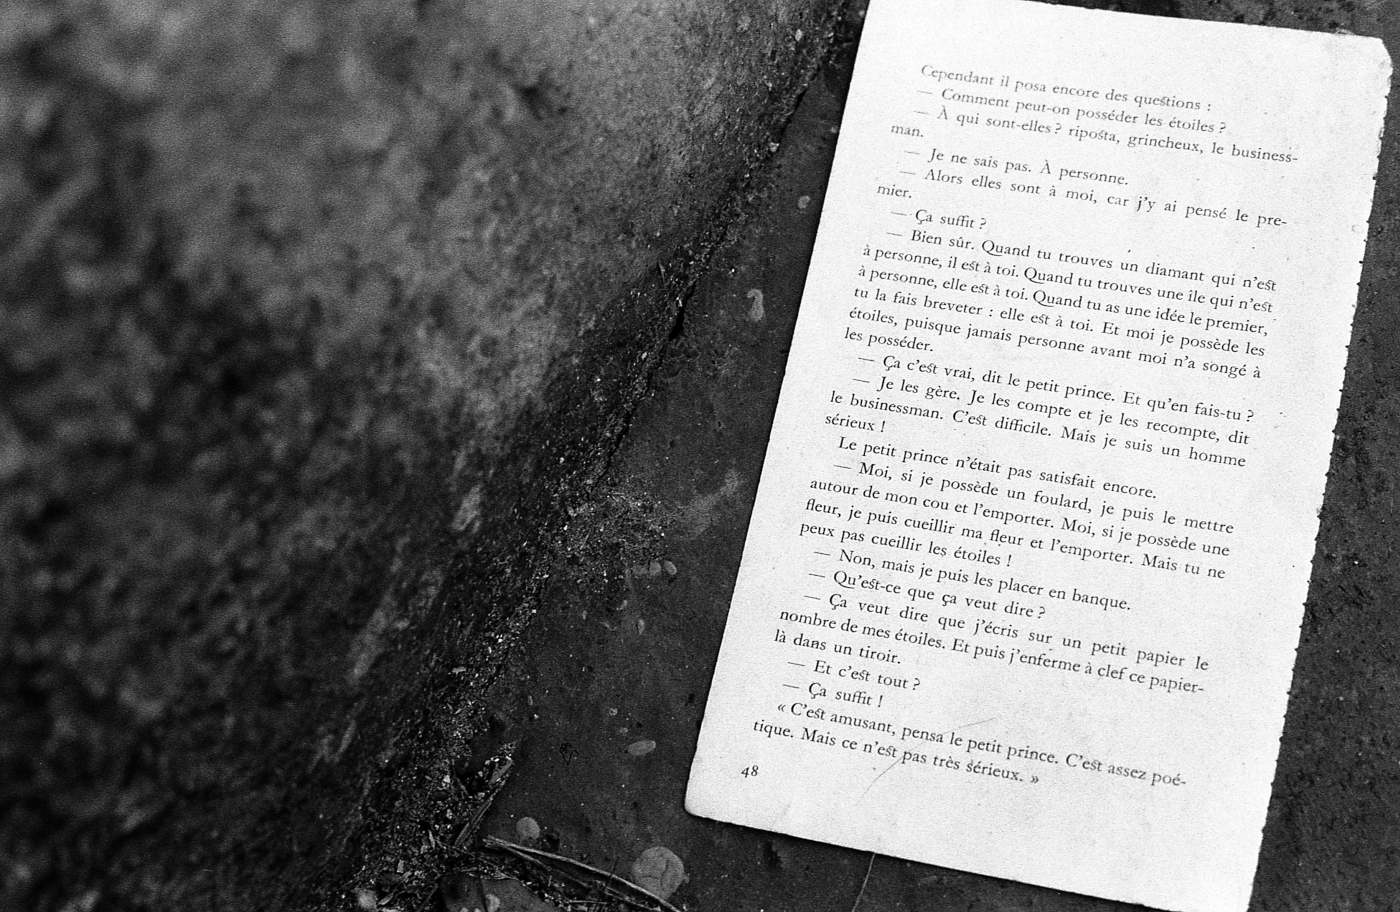 Cependant il posa encore des questions :
— Comment peut-on posséder les étoiles ?
— À qui sont-elles ? riposta, grincheux, le business-
man.
— Je ne sais pas. À personne.
— Alors elles sont à moi, car j'y ai pensé le pre-
mier.
— Ça suffit ?
— Bien sûr. Quand tu trouves un diamant qui n'est
à personne, il est à toi. Quand tu trouves une île qui n'est
à personne, elle est à toi. Quand tu as une idée le premier,
tu la fais breveter : elle est à toi. Et moi je possède les
étoiles, puisque jamais personne avant moi n'a songé à
les posséder.
— Ça c'est vrai, dit le petit prince. Et qu'en fais-tu ?
— Je les gère. Je les compte et je les recompte, dit
le businessman. C'est difficile. Mais je suis un homme
sérieux !
Le petit prince n'était pas satisfait encore.
— Moi, si je possède un foulard, je puis le mettre
autour de mon cou et l'emporter. Moi, si je possède une
fleur, je puis cueillir ma fleur et l'emporter. Mais tu ne
peux pas cueillir les étoiles !
— Non, mais je puis les placer en banque.
— Qu'est-ce que ça veut dire ?
— Ça veut dire que j'écris sur un petit papier le
nombre de mes étoiles. Et puis j'enferme à clef ce papier-
là dans un tiroir.
— Et c'est tout ?
— Ça suffit !
« C'est amusant, pensa le petit prince. C'est assez poé-
tique. Mais ce n'est pas très sérieux. »
48